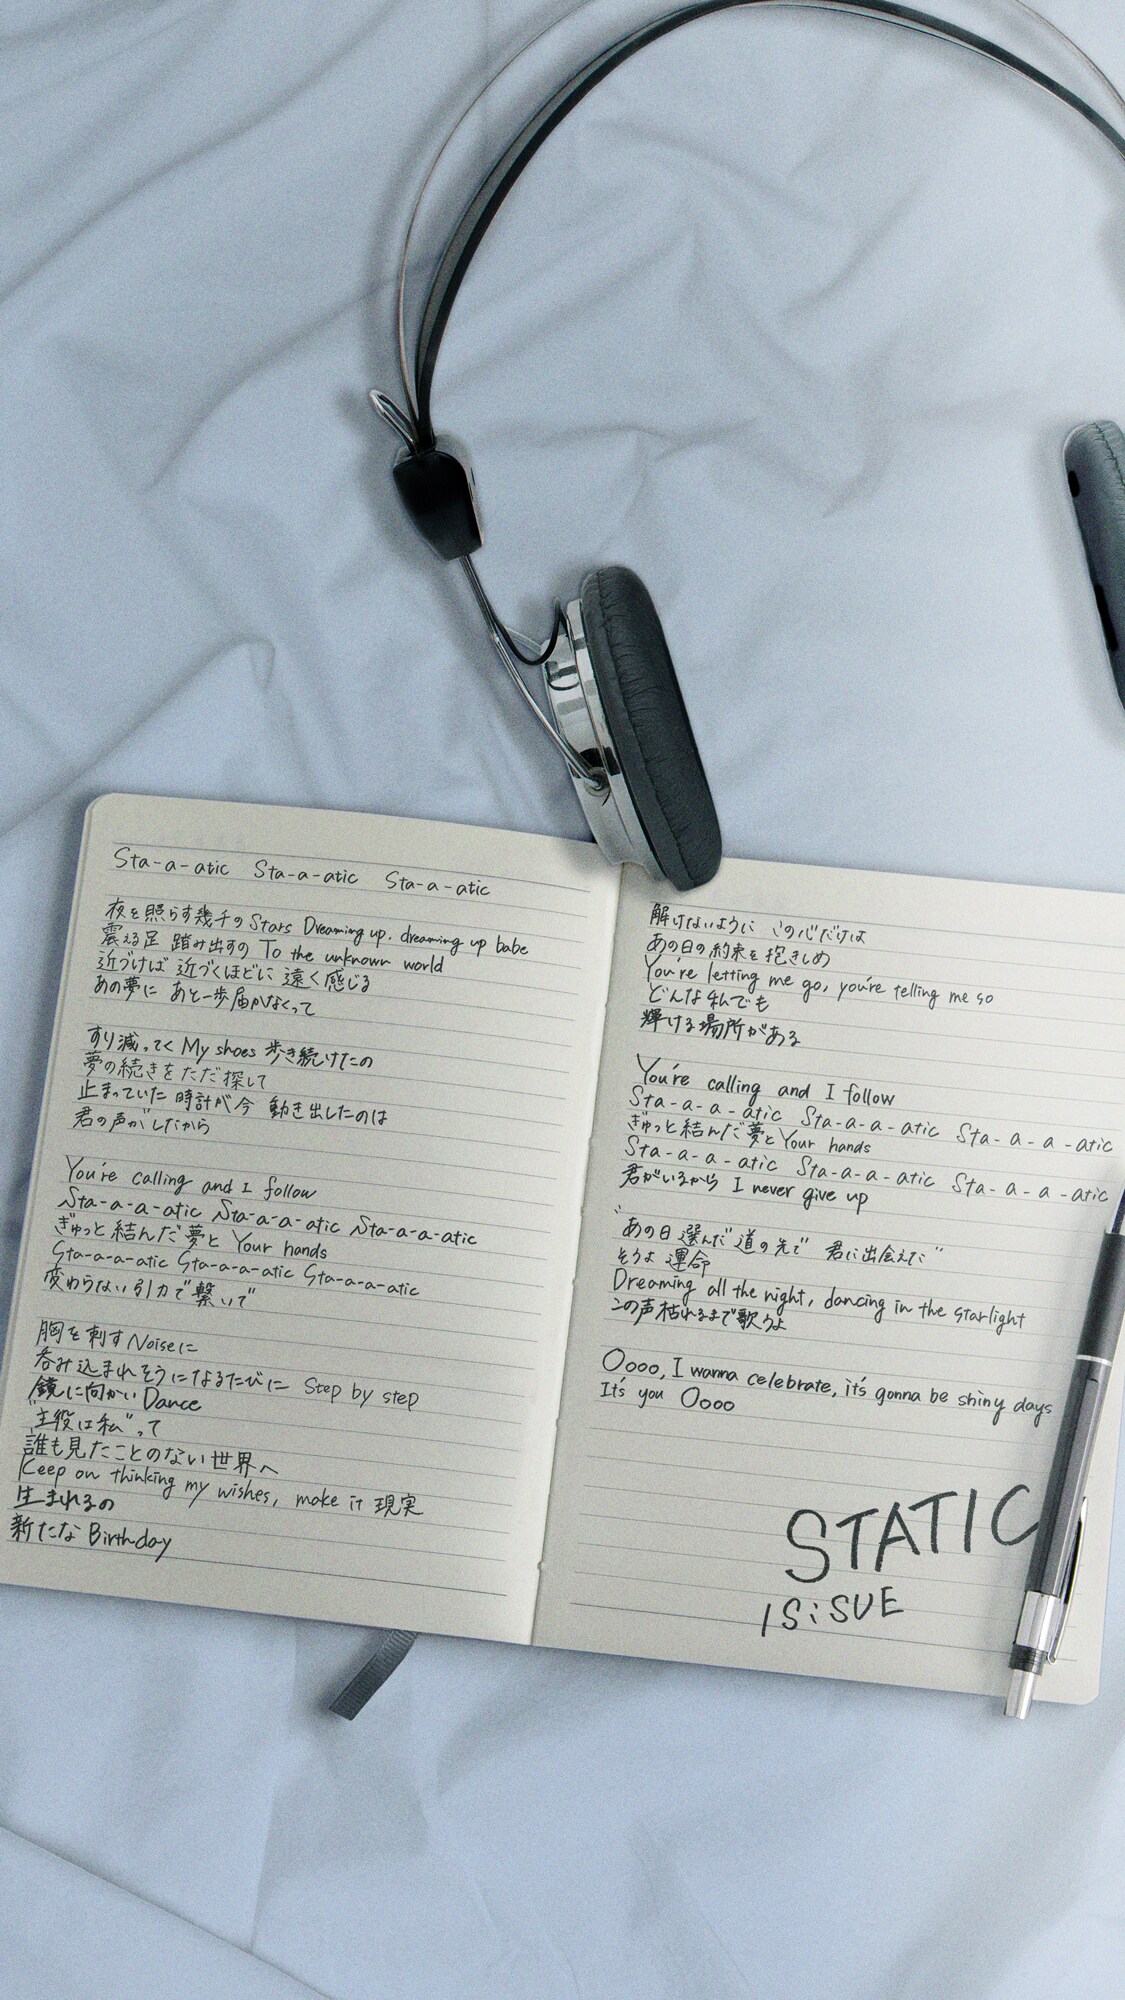 Sta-a-atic Sta-a-atic Sta-a-atic
夜を照らす幾千のStars Dreaming up, dreaming up babe
震える足 踏み出すの To the unknown world
近づけば 近づくほどに 遠く感じる
あの夢に あと一歩届かなくって
すり減ってく My shoes 歩き続けたの
夢の続きをただ探して
止まっていた 時計が今 動き出したのは
君の声がしたから
You're calling and I follow
Sta-a-a-atic Sta-a-a-atic Sta-a-a-atic
ぎゅっと結んだ夢と Your hands
Sta-a-a-atic Sta-a-a-atic Sta-a-a-atic
変わらない引力で繋いで
胸を刺すNoiseに
呑み込まれそうになるたびに Step by step
鏡に向かい Dance
"主役は私"って
誰も見たことのない世界へ
Keep on thinking my wishes, make it 現実
生まれるの
新たな Birthday
解けないように この心だけは
あの日の約束を抱きしめ
You're letting me go, you're telling me so
どんな私でも
輝ける場所がある
You're calling and I follow
Sta-a-a-atic Sta-a-a-atic Sta-a-a-atic
ぎゅっと結んだ夢とYour hands
Sta-a-a-atic Sta-a-a-atic Sta-a-a-atic
君がいるから I never give up
"あの日選んだ道の先で 君に出会えた"
そうよ 運命
Dreaming all the night, dancing in the starlight
この声枯れるまで歌うよ
Oooo, I wanna celebrate, it's gonna be shiny days
It's you Oooo
STATIC
IS:SUE